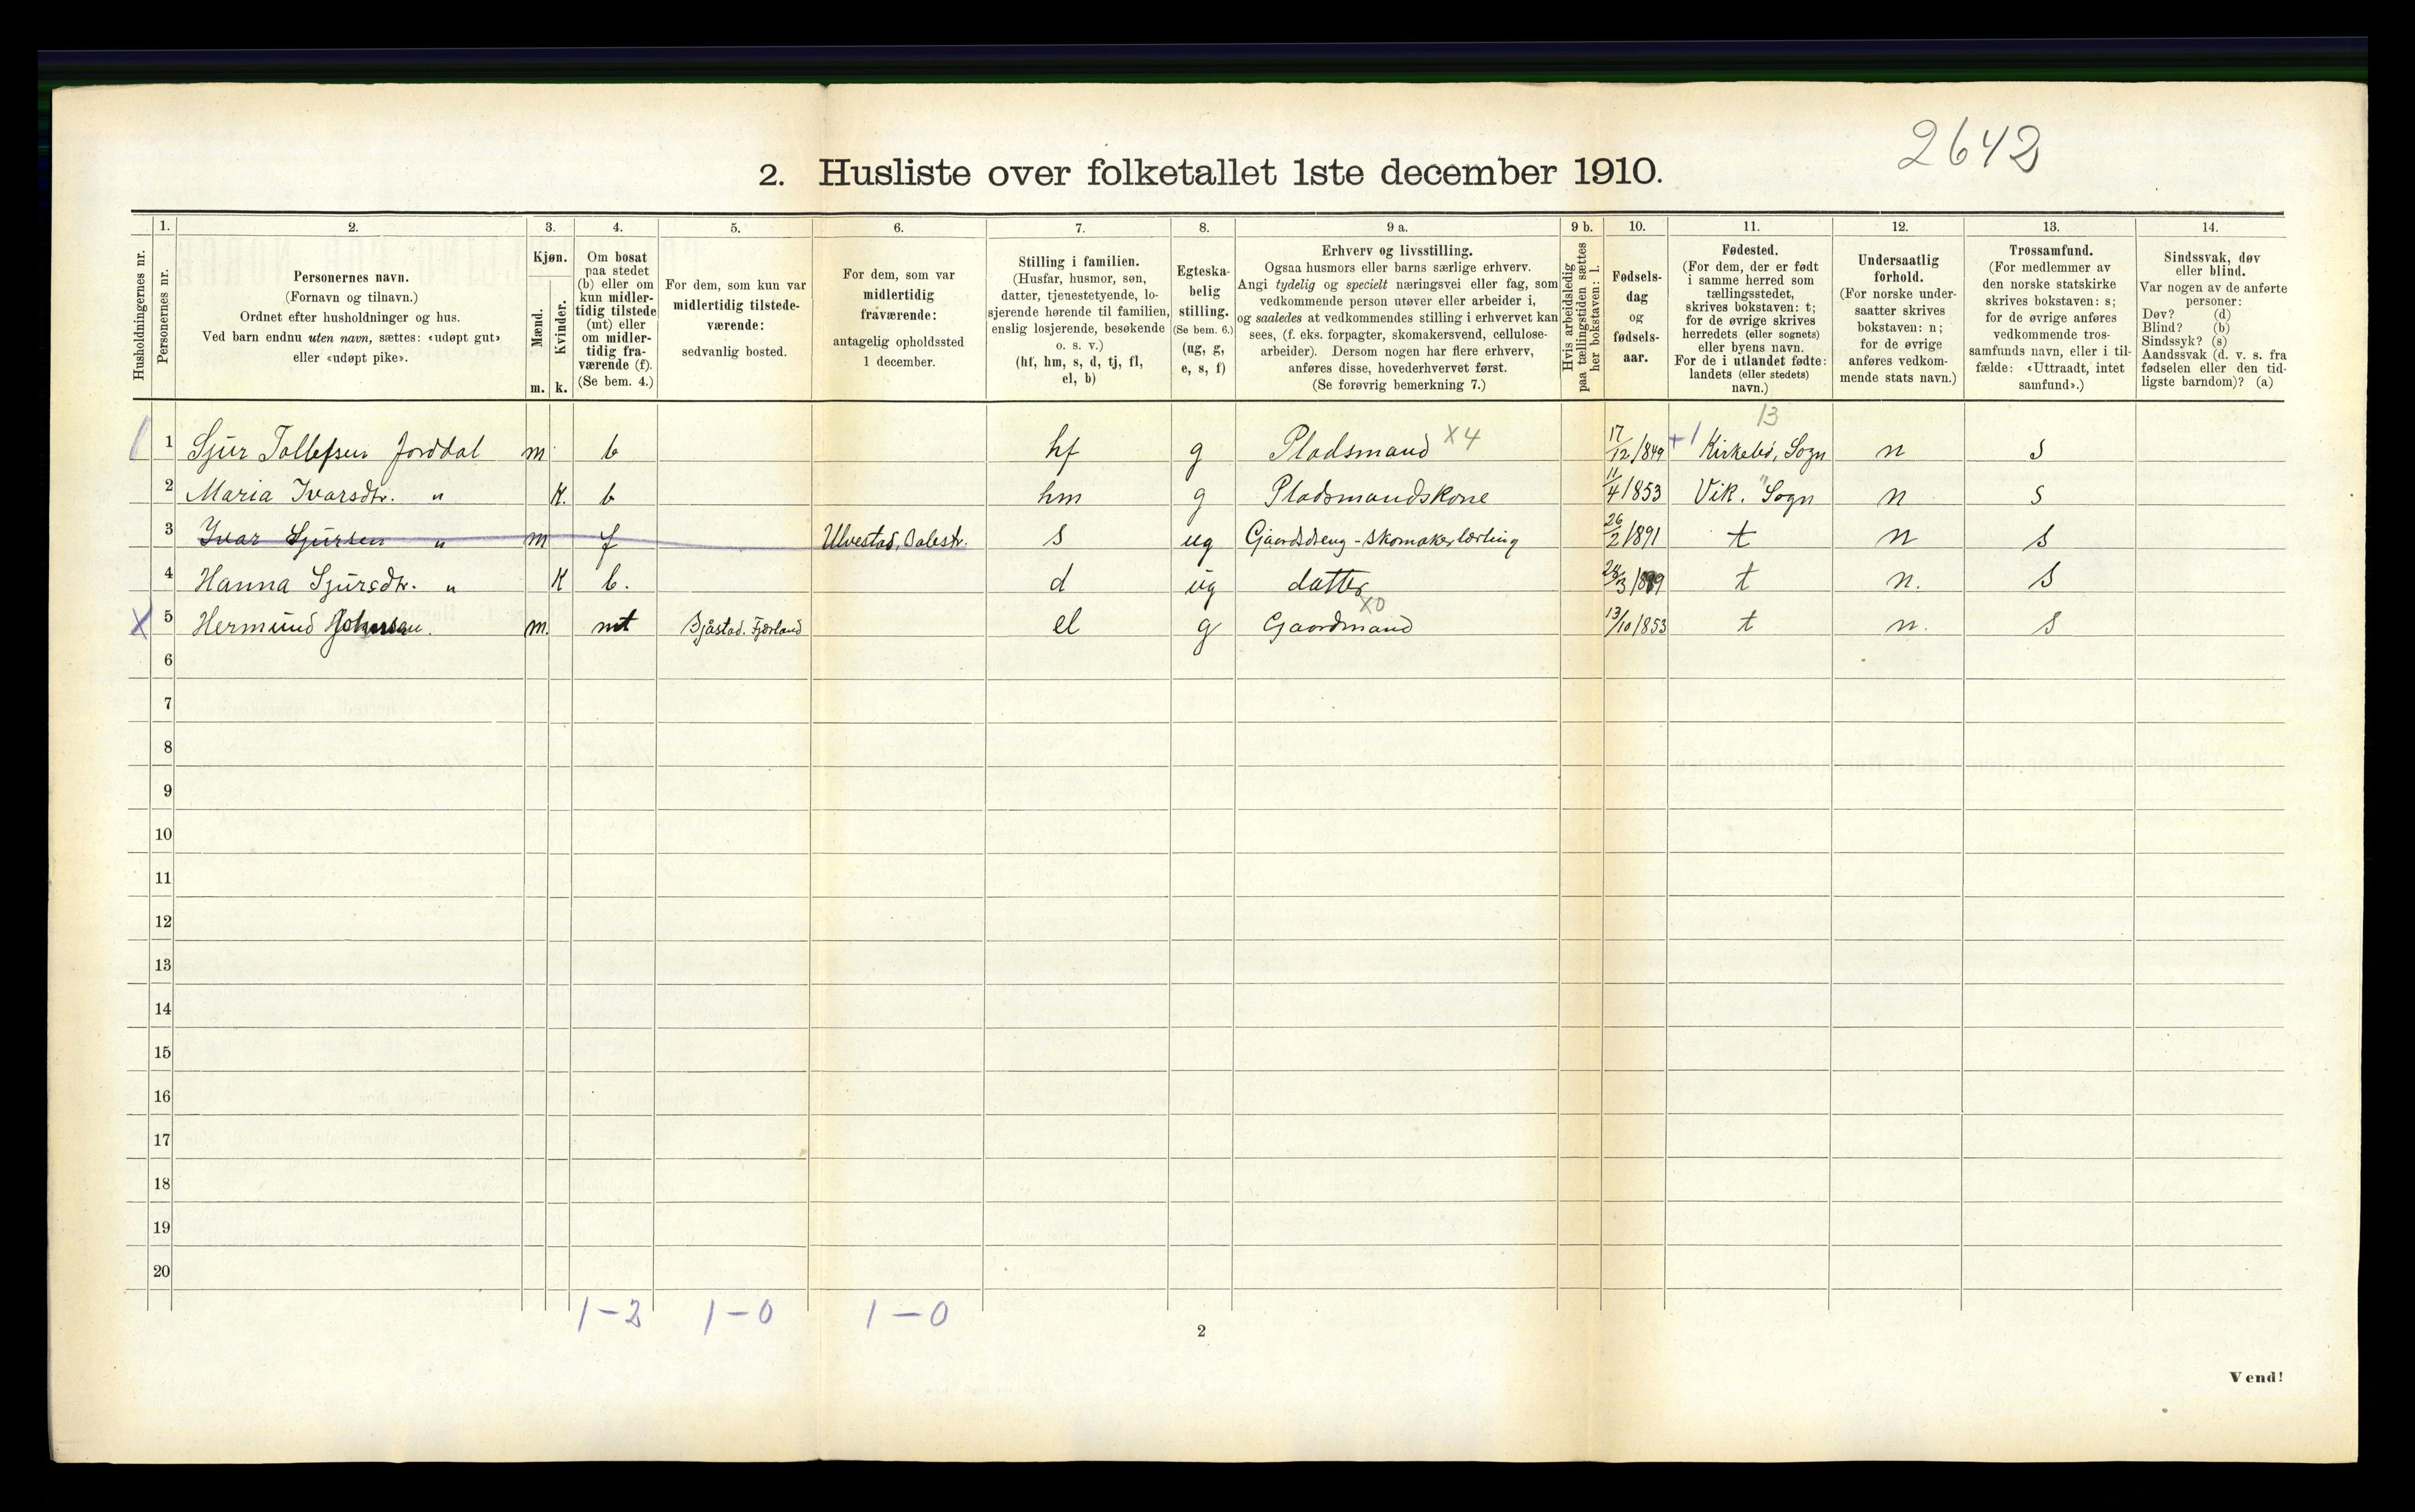 2642
2. Husliste over folketallet 1ste december 1910.
Husholdningernes nr.
1.
Personernes nr.
2.
Personernes navn.
(Fornavn og tilnavn.)
Ordnet efter husholdninger og hus.
Ved barn endnu uten navn, sættes: «udøpt gut»
eller «udøpt pike».
3.
Kjøn.
Mænd.
Kvinder.
m. k.
4.
Om bosat
paa stedet
(b) eller om
kun midler-
tidig tilstede
(mt) eller
om midler-
tidig fra-
værende (f).
(Se bem. 4.)
5.
For dem, som kun var
midlertidig tilstede-
værende:
sedvanlig bosted.
6.
For dem, som var
midlertidig
fraværende:
antagelig opholdssted
1 december.
7.
Stilling i familien.
(Husfar, husmor, søn,
datter, tjenestetyende, lo-
sjerende hørende til familien,
enslig losjerende, besøkende
o. s. v.)
(hf, hm, s, d, tj, fl,
el, b)
8.
Egteska-
belig
stilling.
(Se bem. 6.)
(ug, g,
e, s, f)
9 a.
Erhverv og livsstilling.
Ogsaa husmors eller barns særlige erhverv.
Angi tydelig og specielt næringsvei eller fag, som
vedkommende person utøver eller arbeider i,
og saaledes at vedkommendes stilling i erhvervet kan
sees, (f. eks. forpagter, skomakersvend, cellulose-
arbeider). Dersom nogen har flere erhverv,
anføres disse, hovederhvervet først.
(Se forøvrig bemerkning 7.)
9 b.
Hvis arbeidsledig
paa tællingstiden sættes
her bokstaven: l.
10.
Fødsels-
dag
og
fødsels-
aar.
11.
Fødested.
(For dem, der er født
i samme herred som
tællingsstedet,
skrives bokstaven: t;
for de øvrige skrives
herredets (eller sognets)
eller byens navn.
For de i utlandet fødte:
landets (eller stedets)
navn.)
12.
Undersaatlig
forhold.
(For norske under-
saatter skrives
bokstaven: n;
for de øvrige
anføres vedkom-
mende stats navn.)
13.
Trossamfund.
(For medlemmer av
den norske statskirke
skrives bokstaven: s;
for de øvrige anføres
vedkommende tros-
samfunds navn, eller i til-
fælde: «Uttraadt, intet
samfund».)
14.
Sindssvak, døv
eller blind.
Var nogen av de anførte
personer:
Døv? (d)
Blind? (b)
Sindssyk? (s)
Aandssvak (d. v. s. fra
fødselen eller den tid-
ligste barndom)? (a)
13
1 Sjur Tollefsen Jorddal m b hf g Pladsmand X4 17/12/849 +1 Kirkebø, Sogn n s
2 Maria Ivarsdtr. " K. b hm g Pladsmandskone 11/4/1853 Vik. Sogn n s
3 Ivar Sjursen " m f Ulvestad, Balestr. s ug Gaardsdreng - Skomakerlærling 26/2/1891 t n s
4 Hanna Sjursdtr. " K b. d ug datter t n. s
X 5 Hermund Johansen. m. mt Bjåstad. Fjærland el g Gaardmand X0 13/10/1853 t n. s
6
7
8
9
10
11
12
13
14
15
16
17
18
19
20
1-2 1-0 1-0
2
Vend!